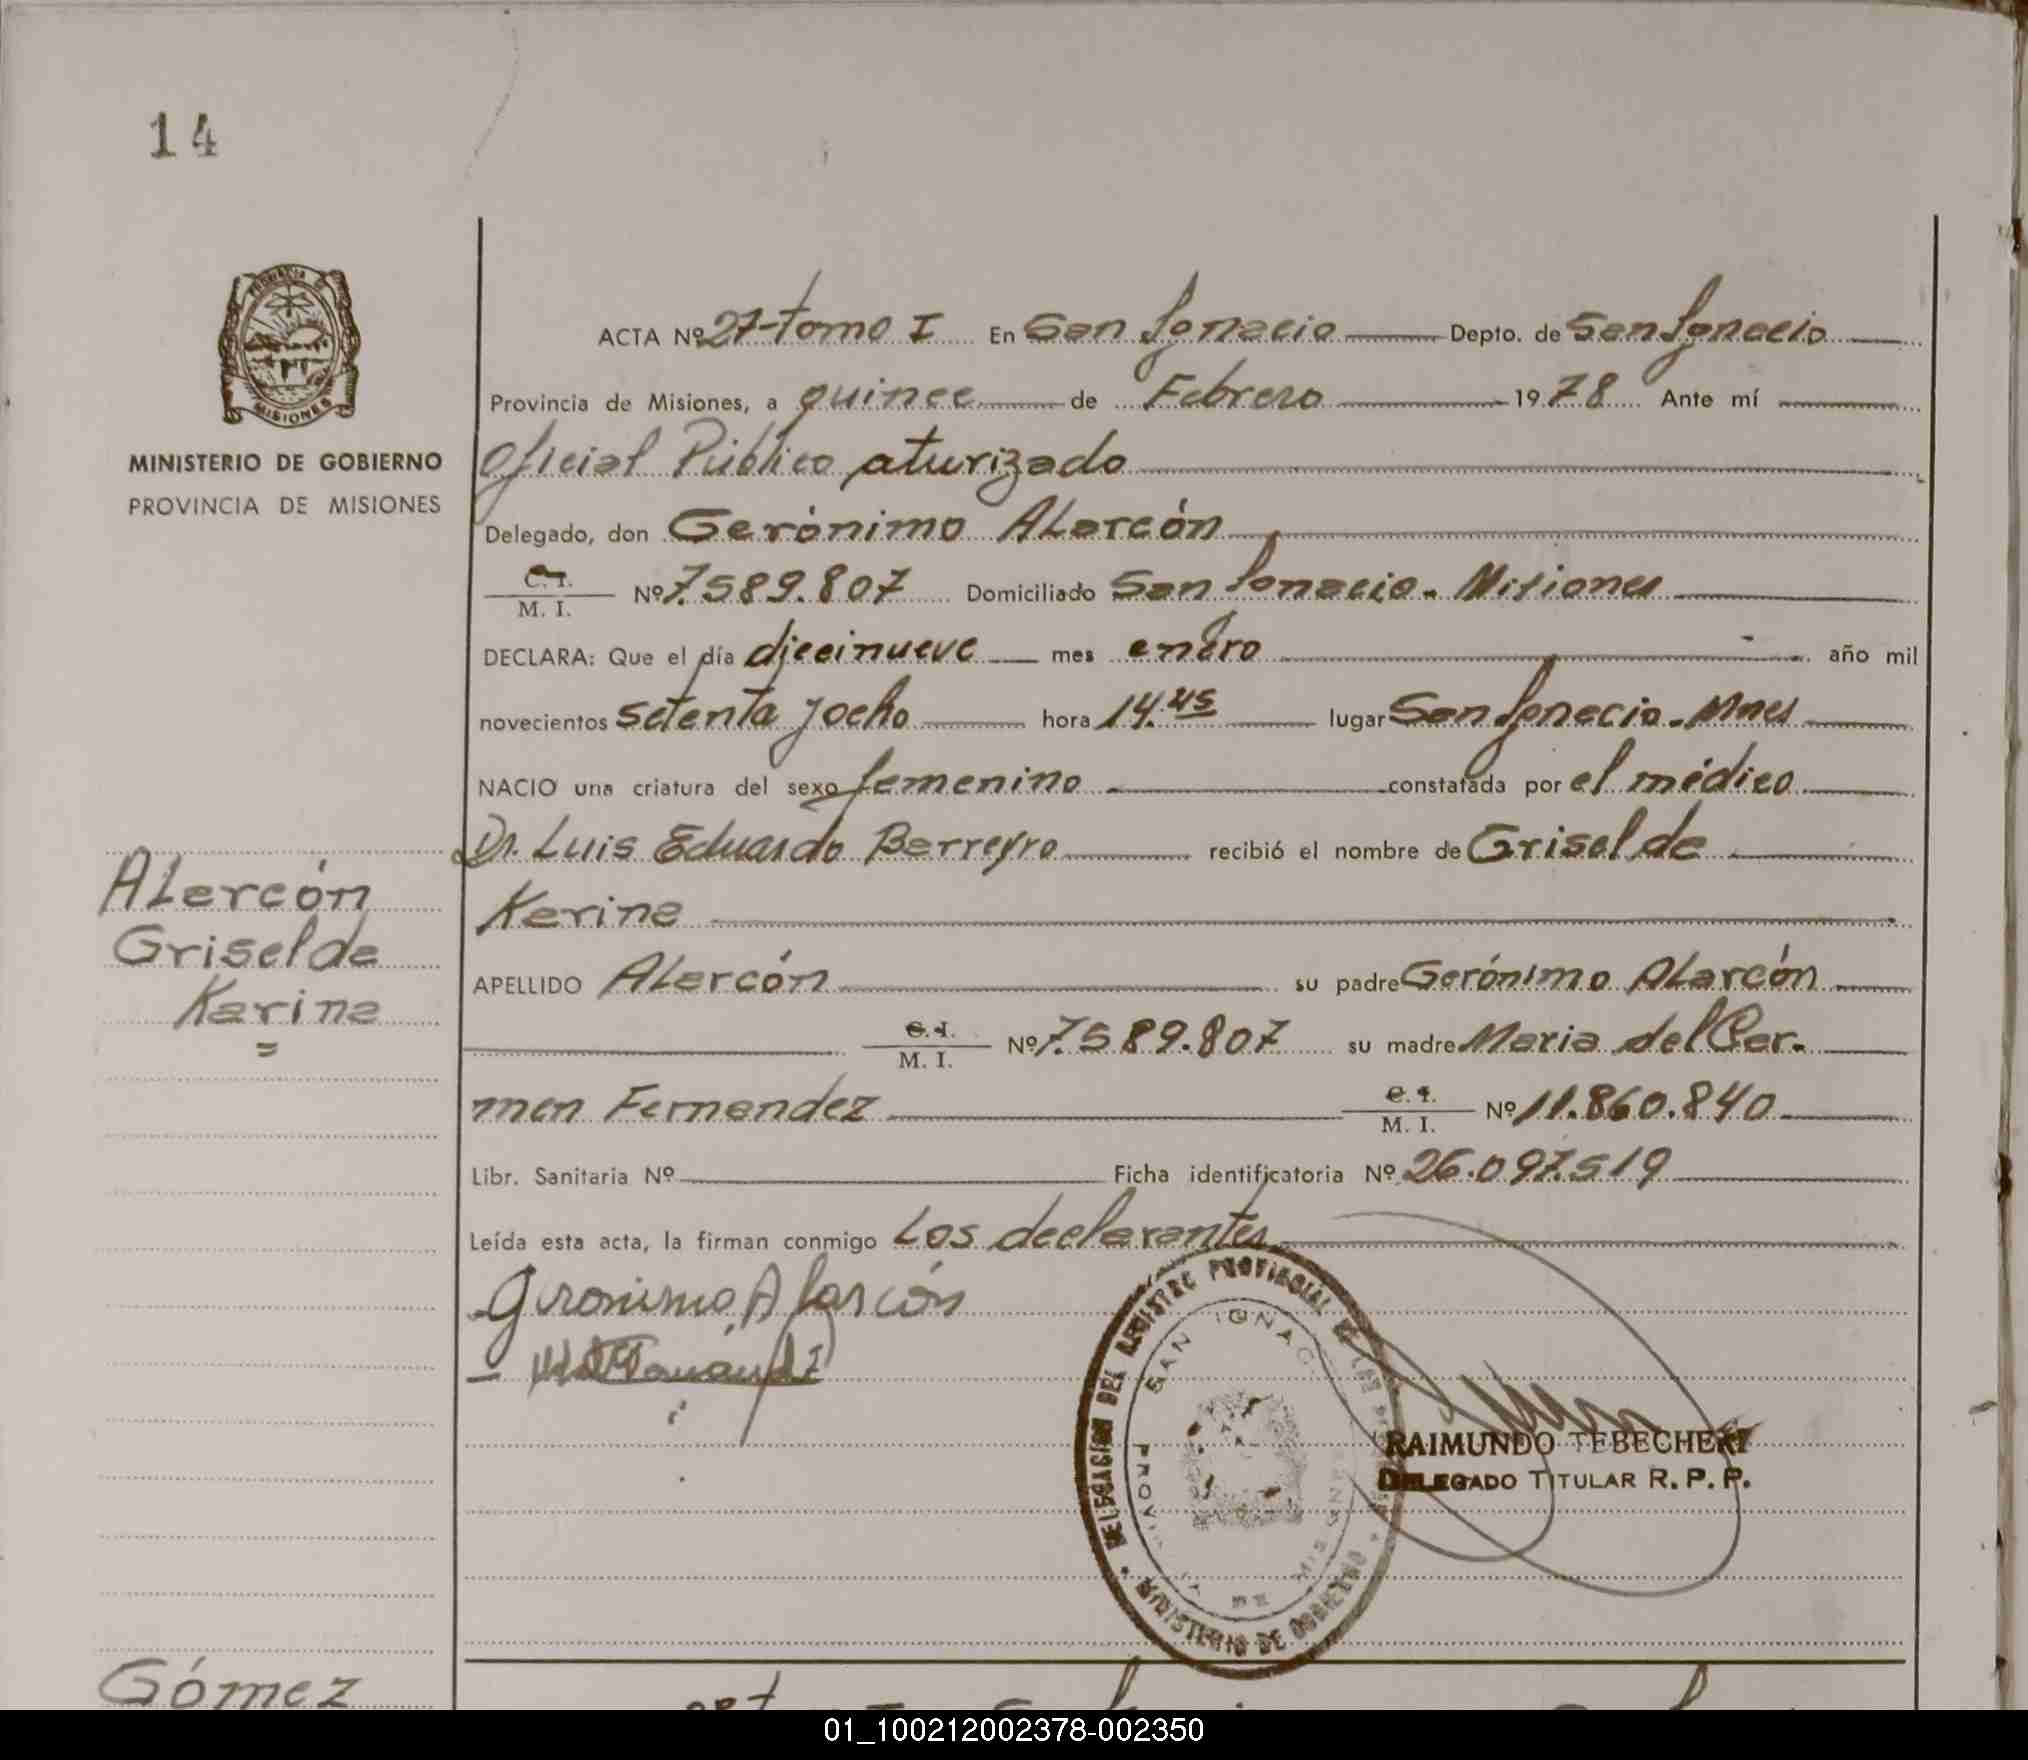 14
PROVINCIA DE
MISIONES
MINISTERIO DE GOBIERNO
PROVINCIA DE MISIONES
ACTA Nº 27-tomo I En San Ignacio Depto. de San Ignacio
Provincia de Misiones, a quince de Febrero 1978 Ante mí
Oficial Público aturizado
Delegado, don Gerónimo ALarcón
C. I.
M. I. Nº 7.589.807 Domiciliado San Ignacio - Misiones
DECLARA: Que el día diecinueve mes enero año mil
novecientos setenta y ocho hora 14.45 lugar San Ignacio - Mnes
NACIO una criatura del sexo femenino constatada por el médico
Dr. Luis Eduardo Barreyro recibió el nombre de Griselda
Karina
APELLIDO ALarcón su padre Gerónimo ALarcón
C. I.
M. I. Nº 7.589.807 su madre Maria del Car-
men Fernandez C. I.
M. I. Nº 11.860.840
Libr. Sanitaria Nº Ficha identificatoria Nº 26.097.519
Leída esta acta, la firman conmigo Los declarantes
Geronimo Alarcón
ALarcón
Griselda
Karina
DELEGACION DEL REGISTRO PROVINCIAL DE LAS
SAN IGNAC
PROVI DE MISIONES
MINISTERIO DE GOBIERNO
RAIMUNDO TEBECHERI
DELEGADO TITULAR R. P. P.
Gómez
01_100212002378-002350